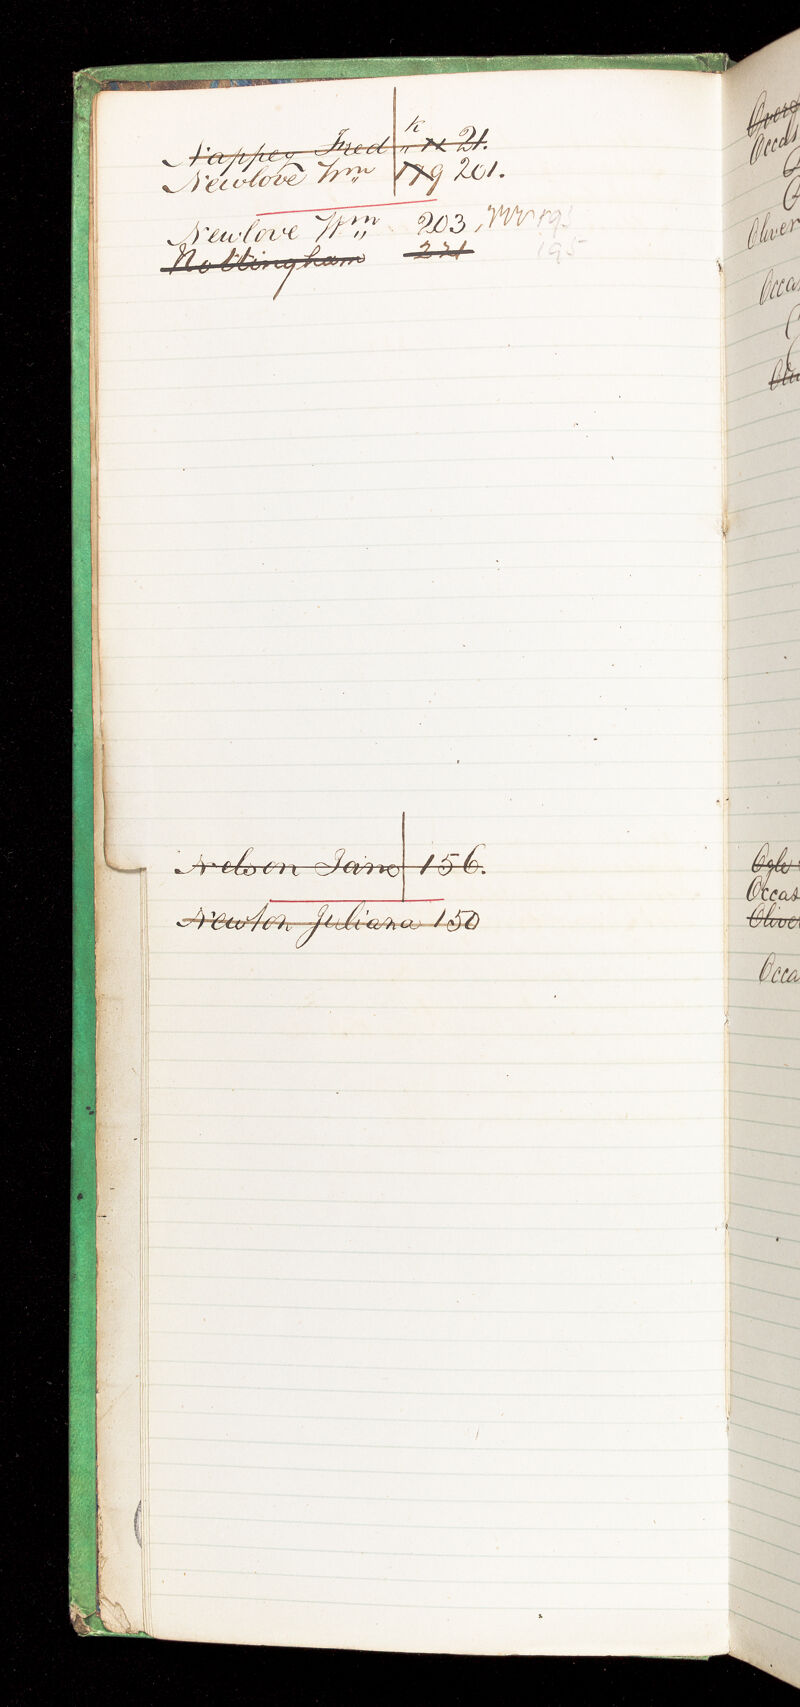 K
Nappey Fred " 11 21.
Newlove Wm 179 201.
Newlove Wm 203,
Nottingham 221
195
Nelson Jane 156.
Newton Juliana 150
Occas
Oliver
Occa
Ogle
Occas
Olive
Occa